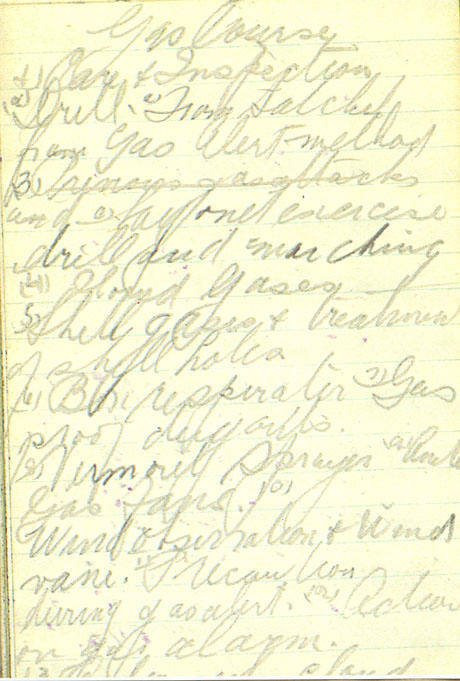 Gas Course
(1) Care & Inspection
(2) Drill. a) From Satchel
from Gas Alert method
(3)
and c) bayonet exercise
drill and marching
(4) Cloud Gases
5) Shell gases & treatment
of shell holes
(6) Box respirator 7) Gas
proof dugouts.
(8) Vermorel Sprayers
Gas fans. (10)
Wind Observation & Wind
vane. 11) Precaution
during gas alert. (12) Action
on gas alarm.
cloud